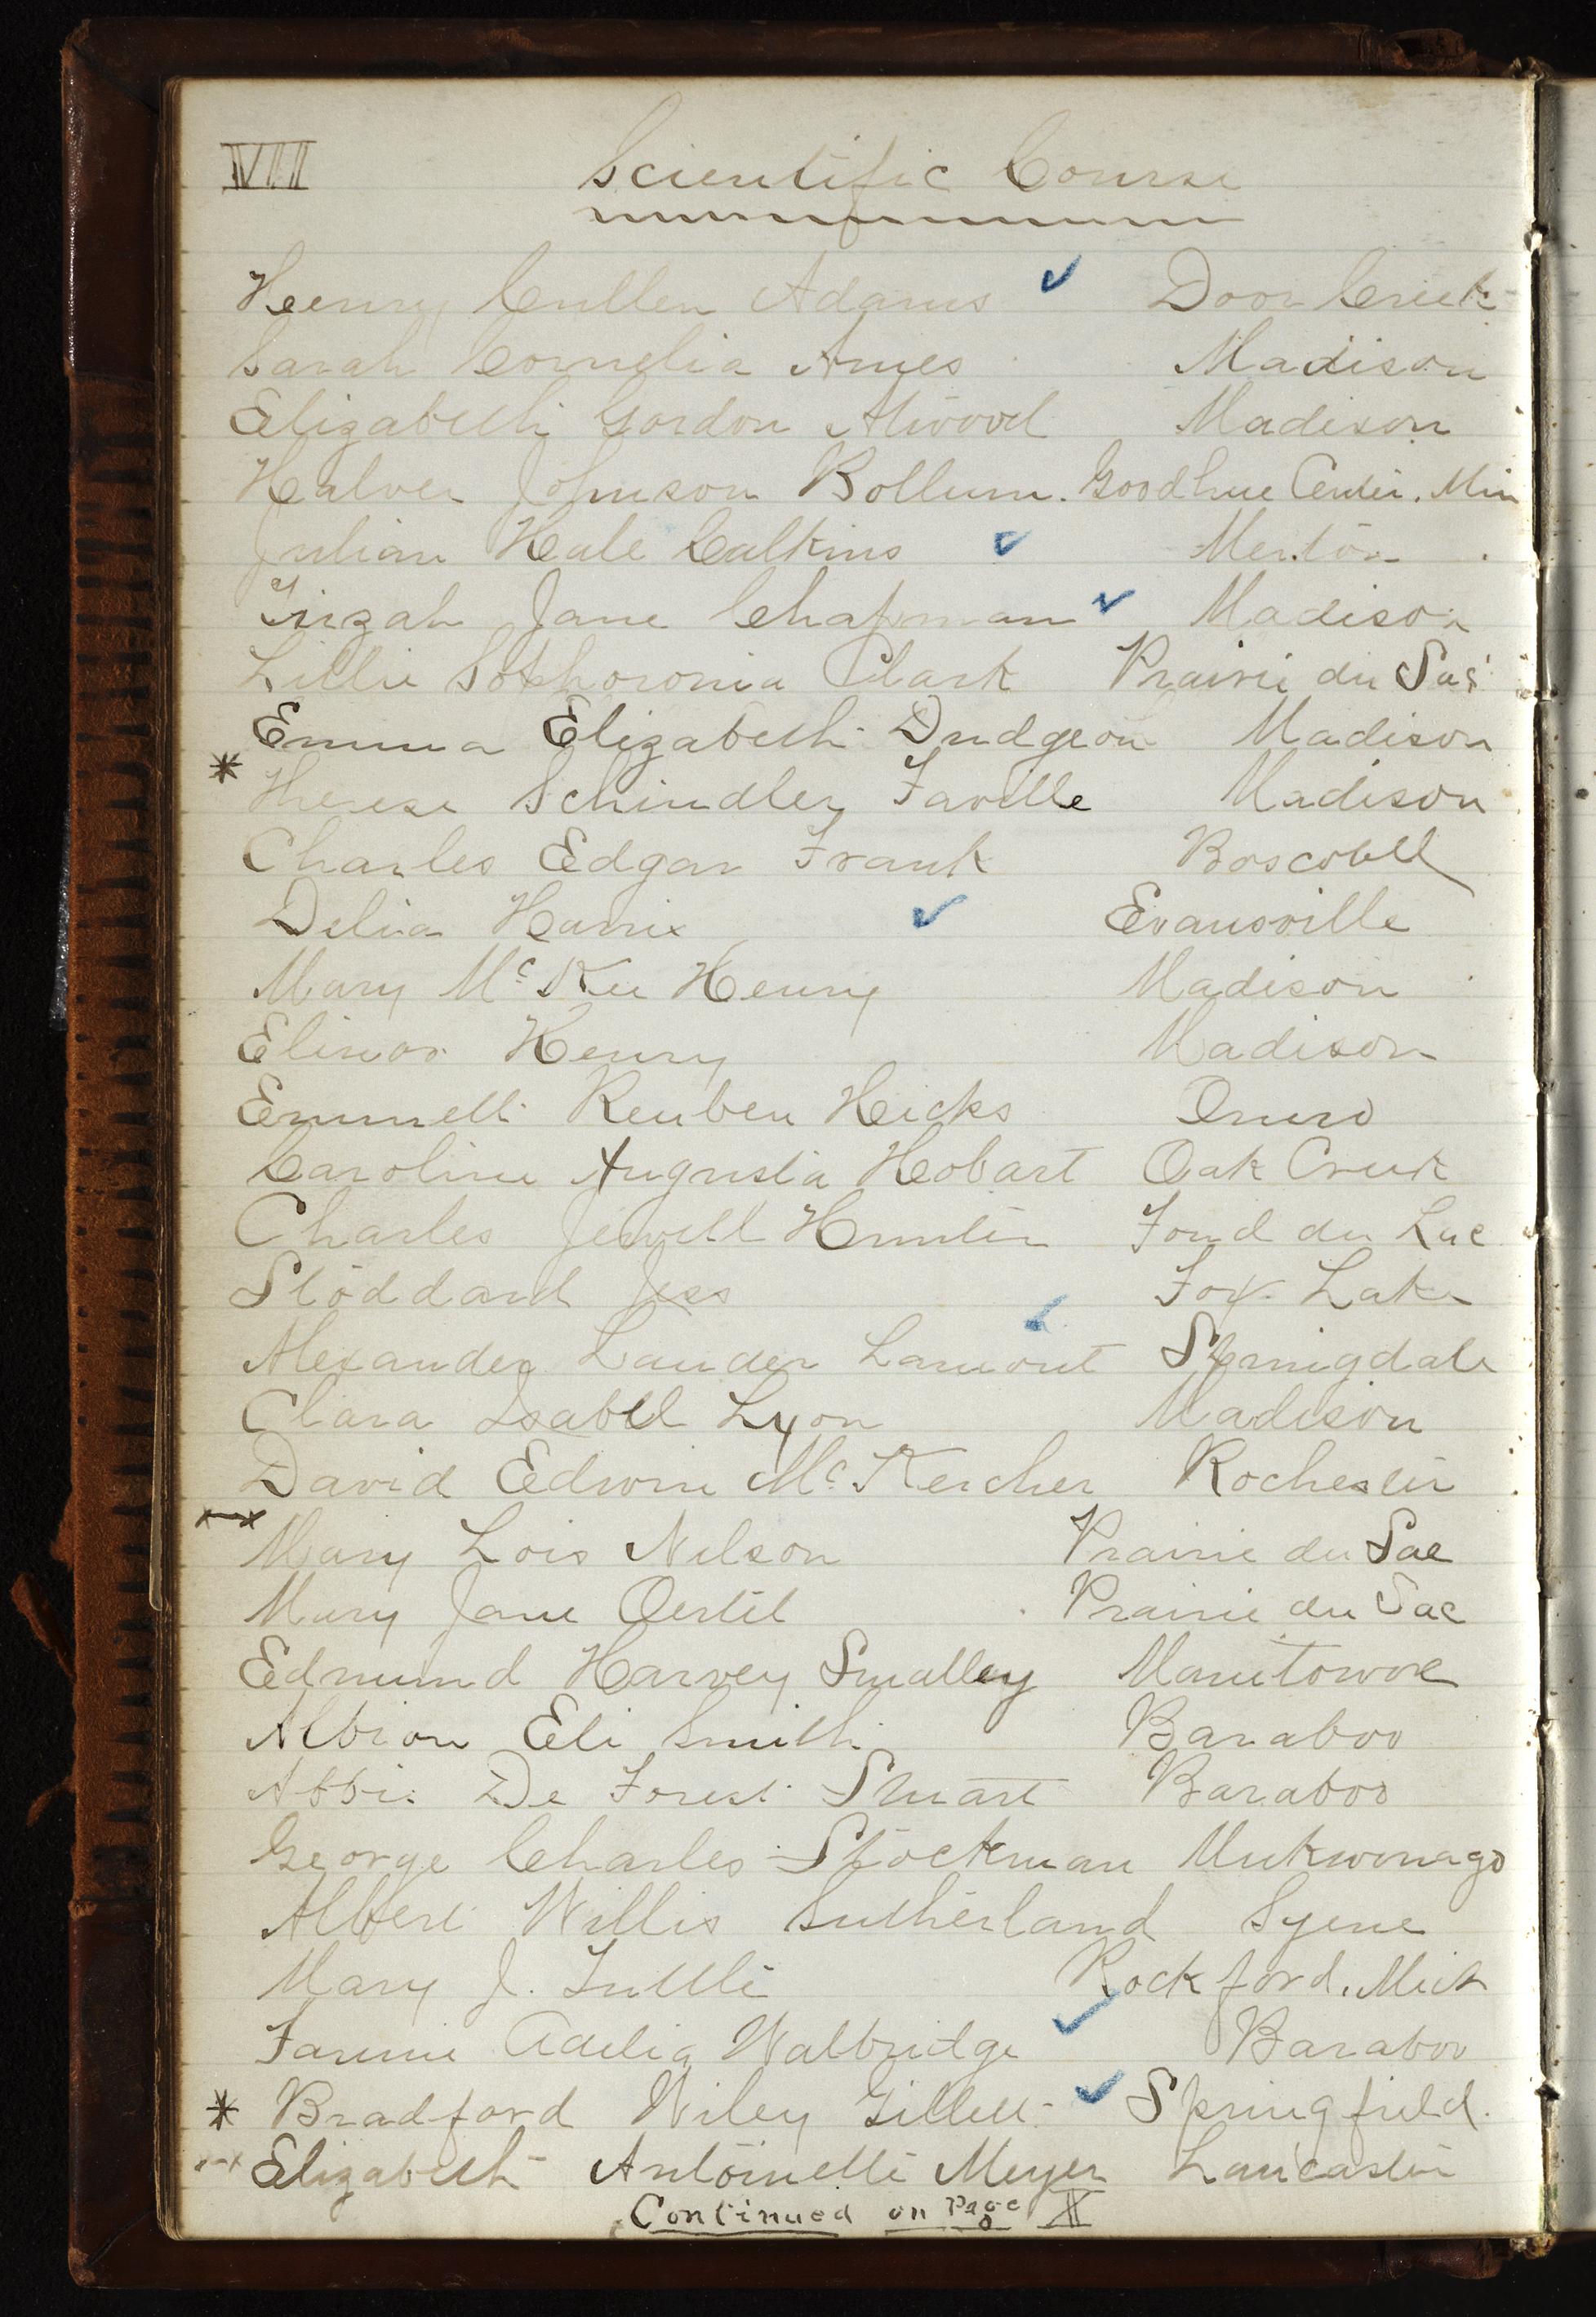 VIII Scientific Course
Henry Cullen Adams ✓ Door Creek
Sarah Cornelia Ames Madison
Elizabeth Gordon Atwood Madison
Halver Johnson Bollum. Goodhue Center. Min
Julian Hale Calkins ✓ Merton
Tirzah Jane Chapman ✓ Madison
Lillie Sophoronia Clark Prairie du Sac
Emma Elizabeth Dudgeon Madison
* Therese Schindler Faville Madison
Charles Edgar Frank Boscobell
Delia Harris ✓ Evansville
Mary Mc Kee Henry Madison
Elinor Henry Madison
Emmett Reuben Hicks Omro
Caroline Augusta Hobart Oak Creek
Charles Jewell Hunter Fond du Lac
Stoddard Jess Fox Lake
Alexander Lauder Lamont ✓ Springdale
Clara Isabel Lyon Madison
David Edwin Mc Kercher Rochester
Mary Lois Nelson Prairie du Sac
Mary Jane Oertel Prairie du Sac
Edmund Harvey Smalley Manitowoc
Albion Eli Smith Baraboo
Abbie De Forest Stuart Baraboo
George Charles Stockman Mukwonago
Albert Willis Sutherland Syene
Mary J. Tuttle Rockford. Mich
Fannie Adelia Walbridge ✓ Baraboo
* Bradford Wiley Gillett ✓ Springfield.
Elizabeth Antoinette Meyer Lancaster
Continued on Page X